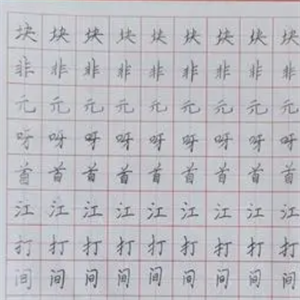 块块块块块块块块
非非非非非非非非
元元元元元元元元
呀呀呀呀呀呀呀呀
首首首首首首首首
江江江江江江江江
打打打打打打打打
间间间间间间间间